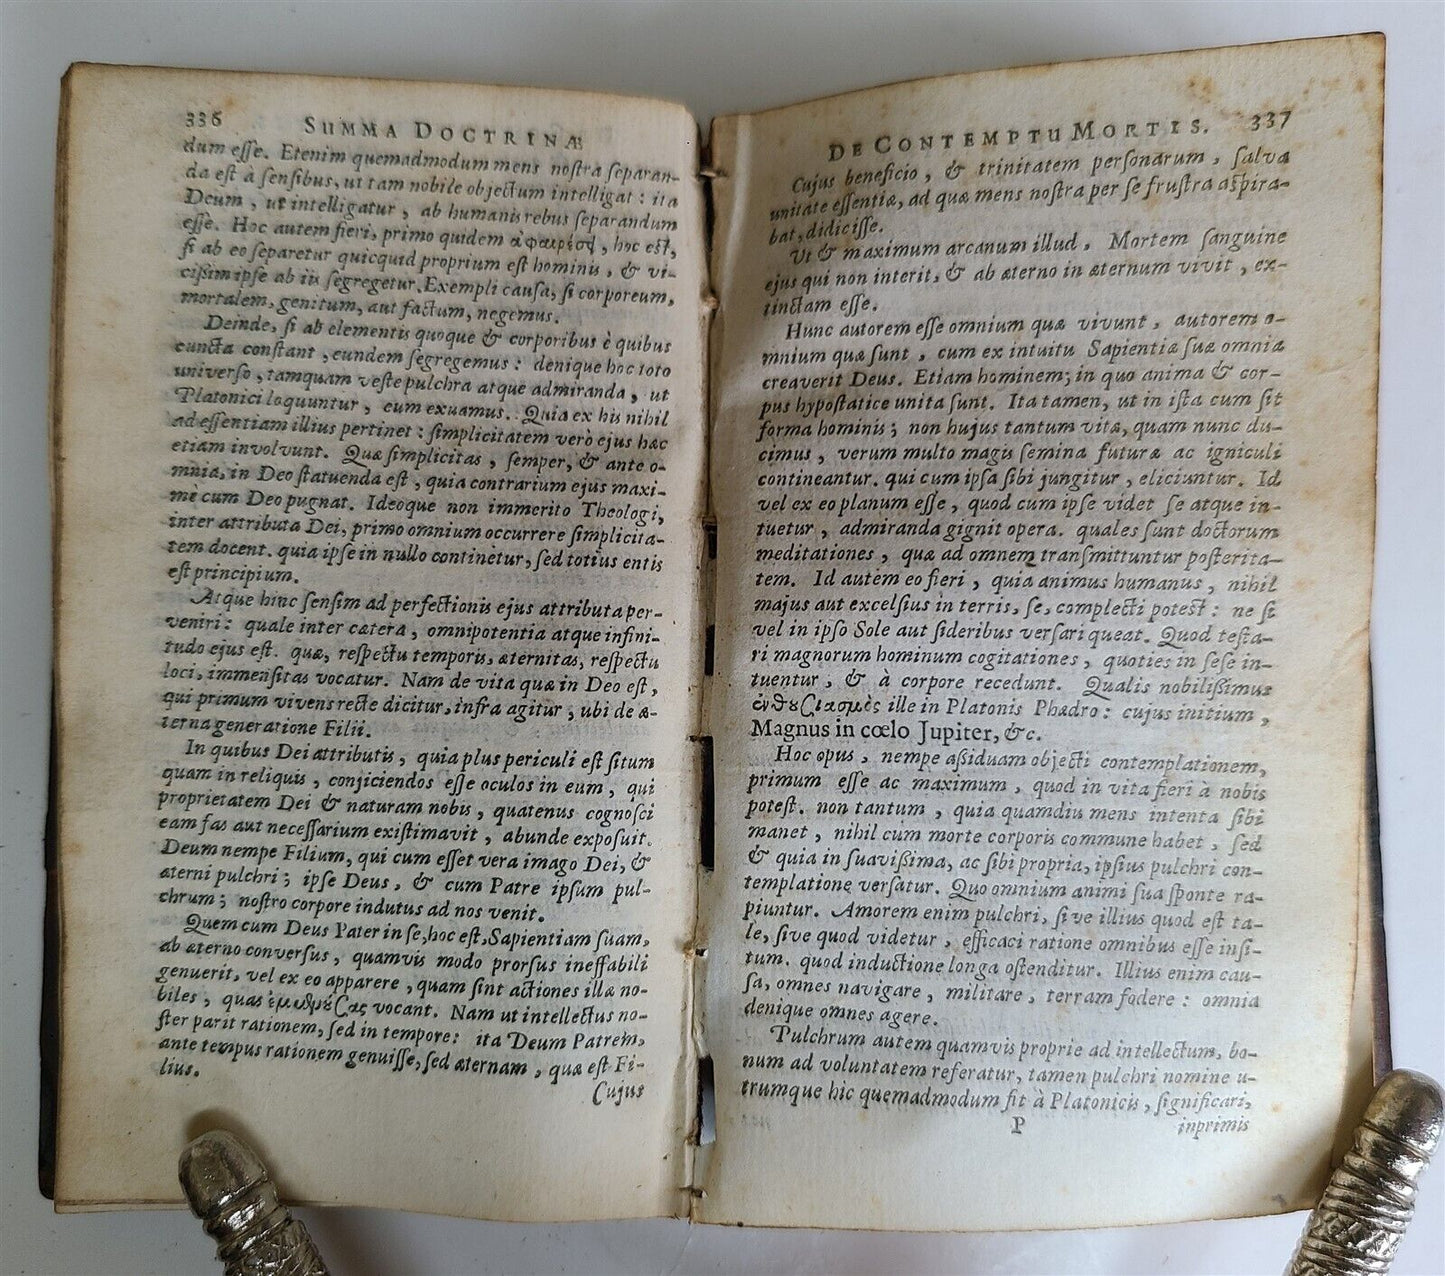 336 SUMMA DOCTRINÆ
dum eſſe. Etenim quemadmodum mens noſtra ſeparan-
da eſt à ſenſibus, ut tam nobile objectum intelligat: ita
Deum, ut intelligatur, ab humanis rebus ſeparandum
eſſe. Hoc autem fieri, primo quidem ἀφαιρέσει, hoc eſt,
ſi ab eo ſeparetur quicquid proprium eſt hominis, & vi-
ciſſim ipſe ab iis ſegregetur. Exempli cauſa, ſi corporeum,
mortalem, genitum, aut factum, negemus.
Deinde, ſi ab elementis quoque & corporibus è quibus
cuncta conſtant, eundem ſegregemus: denique hoc toto
univerſo, tamquam veſte pulchra atque admiranda, ut
Platonici loquuntur, eum exuamus. Quia ex his nihil
ad eſſentiam illius pertinet: ſimplicitatem verò ejus hæc
etiam involvunt. Quæ ſimplicitas, ſemper, & ante o-
mnia, in Deo ſtatuenda eſt, quia contrarium ejus maxi-
mè cum Deo pugnat. Ideoque non immerito Theologi,
inter attributa Dei, primo omnium occurrere ſimplicita-
tem docent. quia ipſe in nullo continetur, ſed totius entis
eſt principium.
Atque hinc ſenſim ad perfectionis ejus attributa per-
veniri: quale inter cætera, omnipotentia atque infini-
tudo ejus eſt. quæ, reſpectu temporis, æternitas, reſpectu
loci, immenſitas vocatur. Nam de vita quæ in Deo eſt,
qui primum vivens recte dicitur, infra agitur, ubi de æ-
terna generatione Filii.
In quibus Dei attributis, quia plus periculi eſt ſitum
quam in reliquis, conjiciendos eſſe oculos in eum, qui
proprietatem Dei & naturam nobis, quatenus cognoſci
eam fas aut neceſſarium exiſtimavit, abunde expoſuit.
Deum nempe Filium, qui cum eſſet vera imago Dei, &
æterni pulchri; ipſe Deus, & cum Patre ipſum pul-
chrum; noſtro corpore indutus ad nos venit.
Quem cum Deus Pater in ſe, hoc eſt, Sapientiam ſuam,
ab æterno converſus, quamvis modo prorſus ineffabili
genuerit, vel ex eo apparere, quam ſint actiones illæ no-
biles, quas vocant. Nam ut intellectus no-
ſter parit rationem, ſed in tempore: ita Deum Patrem,
ante tempus rationem genuiſſe, ſed æternam, quæ eſt Fi-
lius.
Cujus
DE CONTEMPTU MORTIS. 337
Cujus beneficio, & trinitatem perſonarum, ſalva
unitate eſſentiæ, ad quæ mens noſtra per ſe fruſtra aſpira-
bat, didiciſſe.
Ut & maximum arcanum illud, Mortem ſanguine
ejus qui non interit, & ab æterno in æternum vivit, ex-
tinctam eſſe.
Hunc autorem eſſe omnium quæ vivunt, autorem o-
mnium quæ ſunt, cum ex intuitu Sapientiæ ſuæ omnia
creaverit Deus. Etiam hominem; in quo anima & cor-
pus hypoſtatice unita ſunt. Ita tamen, ut in iſta cum ſit
forma hominis; non hujus tantum vitæ, quam nunc du-
cimus, verum multo magis ſemina futuræ ac igniculi
contineantur. qui cum ipſa ſibi jungitur, eliciuntur. Id
vel ex eo planum eſſe, quod cum ipſe videt ſe atque in-
tuetur, admiranda gignit opera. quales ſunt doctorum
meditationes, quæ ad omnem transmittuntur poſterita-
tem. Id autem eo fieri, quia animus humanus, nihil
majus aut excelſius in terris, ſe, complecti poteſt: ne ſi
vel in ipſo Sole aut ſideribus verſari queat. Quod teſta-
ri magnorum hominum cogitationes, quoties in ſeſe in-
tuentur, & à corpore recedunt. Qualis nobiliſſimus
ἐνθȣσιασμὸς ille in Platonis Phædro: cujus initium,
Magnus in cœlo Jupiter, &c.
Hoc opus, nempe aſſiduam objecti contemplationem,
primum eſſe ac maximum, quod in vita fieri à nobis
poteſt. non tantum, quia quamdiu mens intenta ſibi
manet, nihil cum morte corporis commune habet, ſed
& quia in ſuaviſſima, ac ſibi propria, ipſius pulchri con-
templatione verſatur. Quo omnium animi ſua ſponte ra-
piuntur. Amorem enim pulchri, ſive illius quod eſt ta-
le, ſive quod videtur, efficaci ratione omnibus eſſe inſi-
tum. quod inductione longa oſtenditur. Illius enim cau-
ſa, omnes navigare, militare, terram fodere: omnia
denique omnes agere.
Pulchrum autem quamvis proprie ad intellectum, bo-
num ad voluntatem referatur, tamen pulchri nomine u-
trumque hic quemadmodum fit à Platonicis, ſignificari,
P inprimis